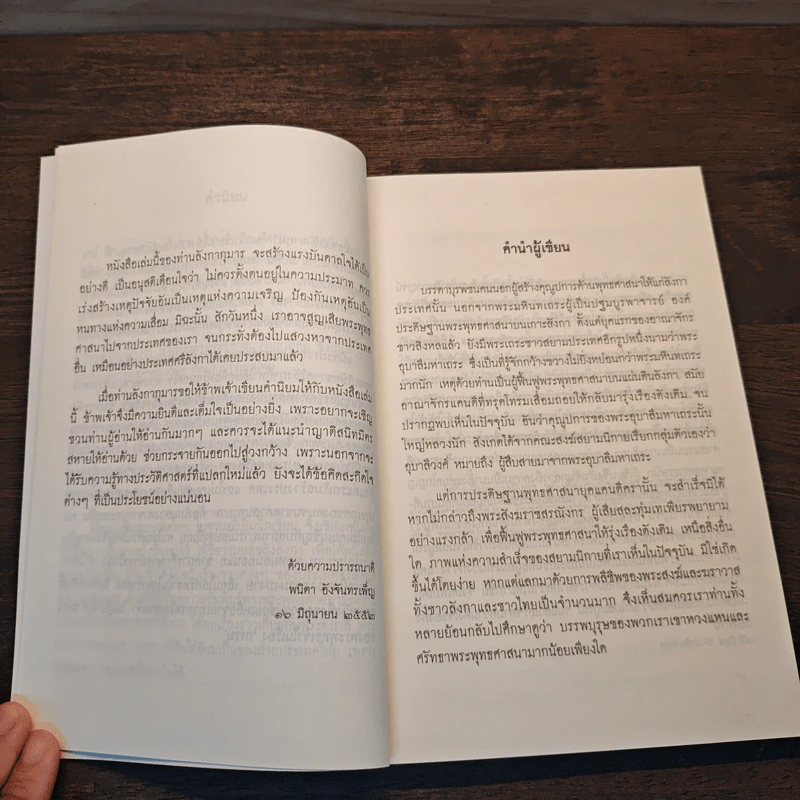 หนังสือเล่มนี้ของท่านลังกากุมาร จะสร้างแรงบันดาลใจได้เป็น
อย่างดี เป็นอนุสติเตือนใจว่า ไม่ควรตั้งตนอยู่ในความประมาท ควร
เร่งสร้างเหตุปัจจัยอันเป็นเหตุแห่งความเจริญ ป้องกันเหตุอันเป็น
หนทางแห่งความเสื่อม มิฉะนั้น สักวันหนึ่ง เราอาจสูญเสียพระพุทธ
ศาสนาไปจากประเทศของเรา จนกระทั่งต้องไปแสวงหาจากประเทศ
อื่น เหมือนอย่างประเทศศรีลังกาได้เคยประสบมาแล้ว
เมื่อท่านลังกากุมารขอให้ข้าพเจ้าเขียนคำนิยมให้กับหนังสือเล่ม
นี้ ข้าพเจ้าจึงมีความยินดีและเต็มใจเป็นอย่างยิ่ง เพราะอยากจะเชิญ
ชวนท่านผู้อ่านให้อ่านกันมากๆ และควรจะได้แนะนำญาติสนิทมิตร
สหายให้อ่านด้วย ช่วยกระจายกันออกไปสู่วงกว้าง เพราะนอกจากจะ
ได้รับความรู้ทางประวัติศาสตร์ที่แปลกใหม่แล้ว ยังจะได้ข้อคิดสะกิดใจ
ต่างๆ ที่เป็นประโยชน์อย่างแน่นอน
ด้วยความปรารถนาดี
พนิตา อังจันทรเพ็ญ
๑๖ มิถุนายน ๒๕๕๒
คำนำผู้เขียน
บรรดาบุรพชนคนนอกผู้สร้างคุณูปการด้านพุทธศาสนาให้แก่ลังกา
ประเทศนั้น นอกจากพระมหินทเถระผู้เป็นปฐมบูรพาจารย์ องค์
ประดิษฐานพระพุทธศาสนาบนเกาะลังกา ตั้งแต่ยุคแรกของอาณาจักร
ชาวสิงหลแล้ว ยังมีพระเถระชาวสยามอีกรูปหนึ่งนามว่าพระ
อุบาลีมหาเถระ ซึ่งเป็นที่รู้จักกว้างขวางไม่ยิ่งหย่อนกว่าพระมหินทเถระ
มากนัก เหตุด้วยท่านเป็นผู้ฟื้นฟูพระพุทธศาสนาบนแผ่นดินลังกา สมัย
อาณาจักรแคนดีที่ทรุดโทรมเสื่อมถอยให้กลับมารุ่งเรืองดังเดิม จน
ปรากฏพบเห็นในปัจจุบัน อันว่าคุณูปการของพระอุบาลีมหาเถระนั้น
ใหญ่หลวงนัก สังเกตได้จากคณะสงฆ์สยามนิกายเรียกกลุ่มตัวเองว่า
อุบาลีวงศ์ หมายถึง ผู้สืบสายมาจากพระอุบาลีมหาเถระ
แต่การประดิษฐานพุทธศาสนายุคแคนดีครานั้น จะสำเร็จมิได้
หากไม่กล่าวถึงพระสังฆราชสรณังกร ผู้เสียสละทุ่มเทเพียรพยายาม
อย่างแรงกล้า เพื่อฟื้นฟูพระพุทธศาสนาให้รุ่งเรืองดังเดิม เหนือสิ่งอื่น
ใด ภาพแห่งความสำเร็จของสยามนิกายที่เราเห็นในปัจจุบัน มิใช่เกิด
ขึ้นได้โดยง่าย หากแต่แลกมาด้วยการพลีชีพของพระสงฆ์และฆราวาส
ทั้งชาวลังกาและชาวไทยเป็นจำนวนมาก จึงเห็นสมควรเราท่านทั้ง
หลายย้อนกลับไปศึกษาดูว่า บรรพบุรุษของพวกเราเขาหวงแหนและ
ศรัทธาพระพุทธศาสนามากน้อยเพียงใด